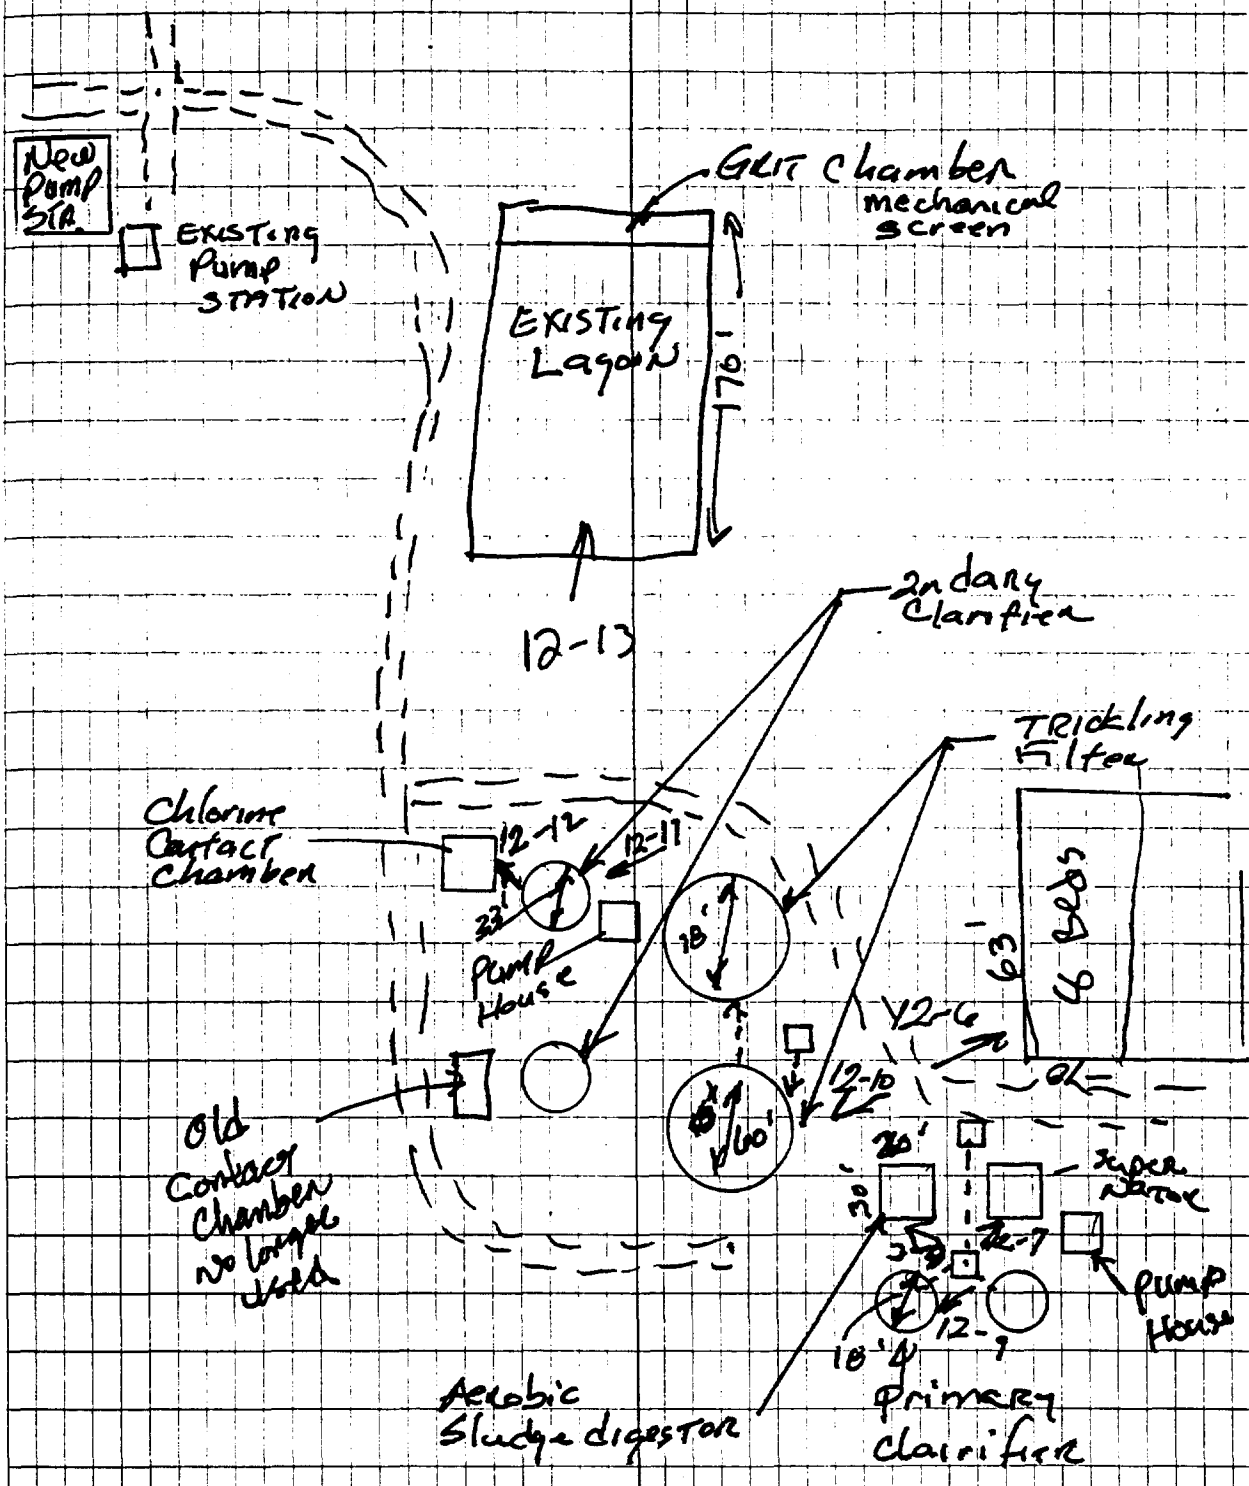 New
Pump
STA.
EXISTing
Pump
STATION
GRIT Chamber
mechanical
screen
EXISTing
Lagoon
170'
12-13
2ndary
Clarifier
TRickling
Filter
Chlorine
Contact
Chamber
12-12
12-11
33'
Pump
House
18'
63'
6 Beds
12-6
12-10
60'
Old
Contact
Chamber
No longer
Used
20'
30'
Super
Natox
12-7
12-9
18'
Pump
House
Aerobic
Sludge digestor
Primary
Clairifier